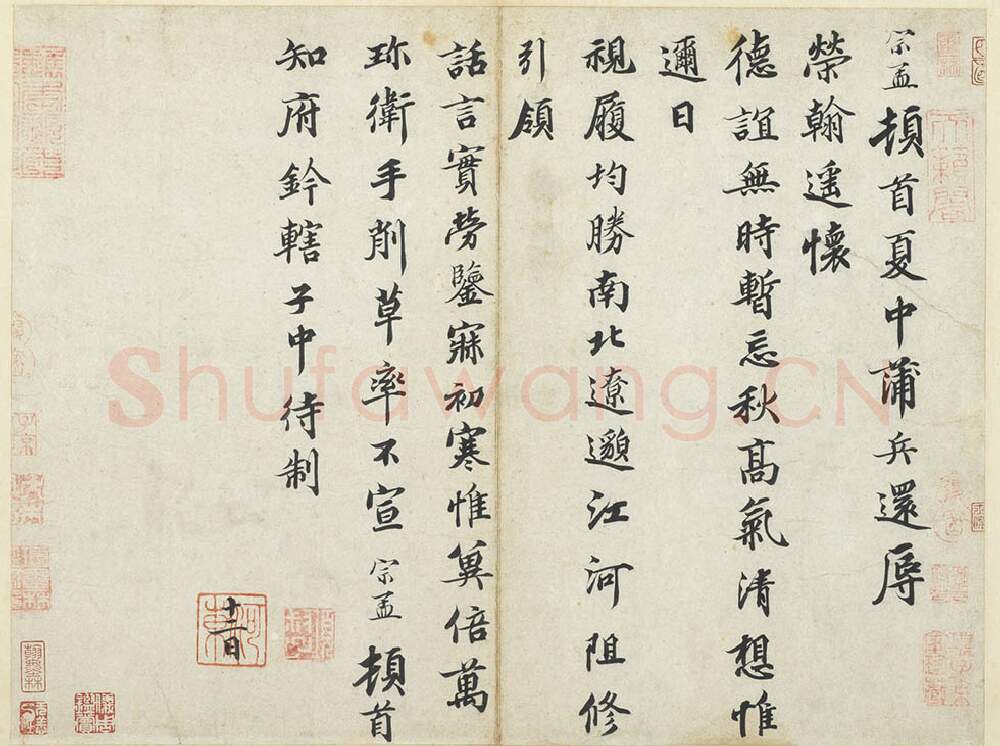 宗孟頓首夏中蒲兵還辱
榮翰遥懷
德誼無時暫忘秋高氣清想惟
邇日
視履均勝南北遼邈江河阻修
引領
話言實勞鑒寐初寒惟冀倍萬
珎衛手削草率不宣宗孟頓首
知府鈐轄子中待制
十二日
Shufawang.CN